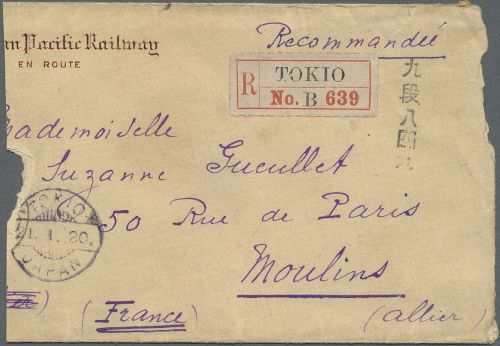 Pacific Railway
EN ROUTE
Recommandée
R
TOKIO
No. B 639
九段八四九
Mademoiselle
Suzanne Gueullet
50 Rue de Paris
Moulins
(France)
(allier)
TOKIO
JAPAN